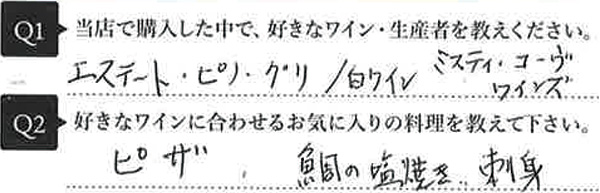 Q1 当店で購入した中で、好きなワイン・生産者を教えください。
エステート・ピノ・グリ /白ワイン ミスティ・コーヴ
ワインズ
Q2 好きなワインに合わせるお気に入りの料理を教えて下さい。
ピザ , 鯛の塩焼き.. 刺身